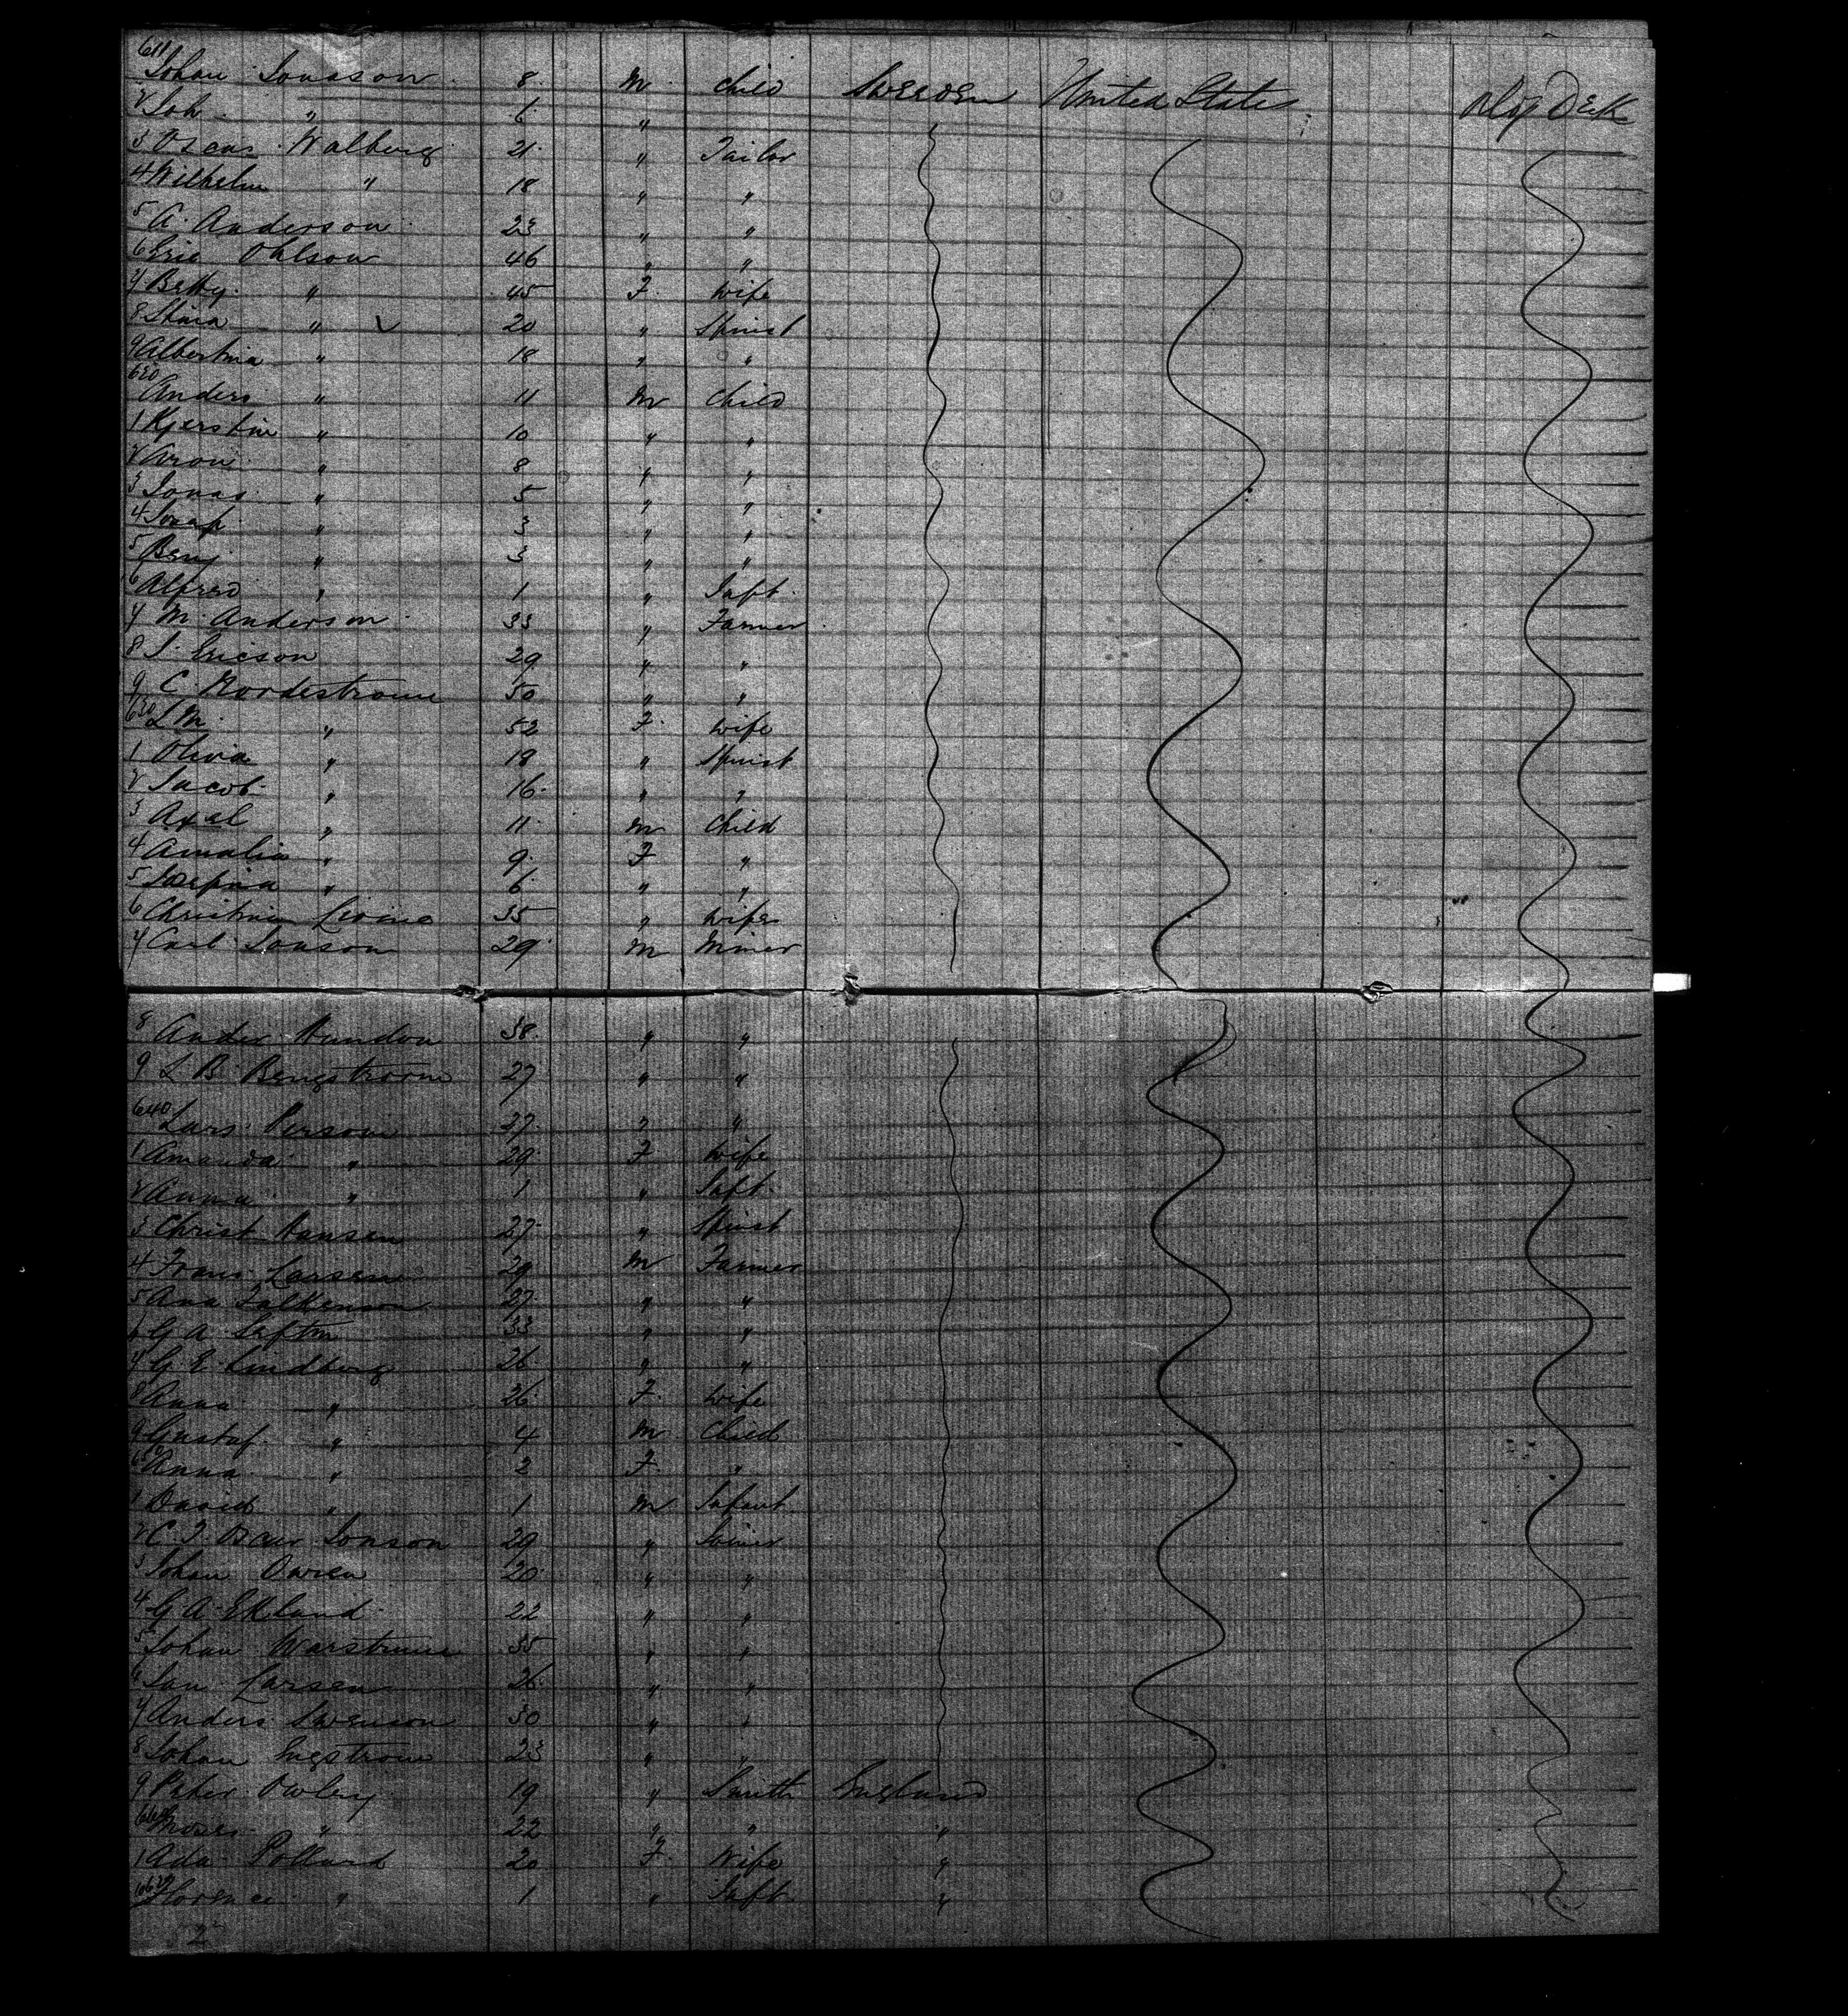 611 Johan Jonason 8 M Child Sweden United States
2 Joh " 6 "
3 Oscar Walberg 21 " Tailor
4 Wilhelm " 18 " "
5 A. Anderson 23 " "
6 Eric Ohlson 46 " "
7 Betty " 45 F. Wife
8 " 20 " Spinst
9 Albertina " 18 " "
620 Anders " 11 M Child
1 Kjerstin " 10 " "
2 Aron " 8 " "
3 Jonas " 5 " "
4 " 3 " "
5 Benj " 3 " "
6 Alfred " 1 " Inft.
7 M. Anderson 33 " Farmer
8 J. Ericson 29 " "
9 C. Nordestrome 50 " "
630 L M. " 52 F. Wife
1 Olivia " 18 " Spinst
2 Jacob " 16 " "
3 Axel " 11 M Child
4 Amalia " 9 F "
5 Josefina " 6 " "
6 Christina 35 " Wife
7 Carl Jonson 29 M Miner
8 Ander 38 " "
9 L. B. Bengstrom 27 " "
640 Lars Person 27 " "
1 Amanda " 29 F Wife
2 Anna " 1 " Inft.
3 Christ Hansen 27 " Spinst
4 Frans Larsen 29 M Farmer
5 Ana Falkenson 27 " "
6 G A 33 " "
7 G. E. Lindberg 26 " "
8 Anna " 26 F. Wife
9 Gustaf " 4 M Child
650 Anna " 2 F "
1 David " 1 M Infant
2 C. F. Oscar Jonson 29 "
3 Johan 20 " "
4 G. A. Eklund 22 " "
5 Johan Warstrome 35 " "
6 Jan Larsen 26 " "
7 Anders Swenson 30 " "
8 Johan Engstrom 23 " "
9 Peter Owley 19 " Smith England
660 Moses " 22 " " "
1 Ada Pollard 20 F. Wife "
662 Florence " 1 " Inft "
2